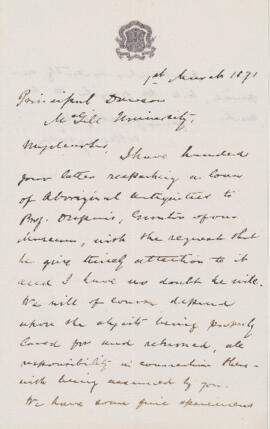 1st March 1871
Principal Dawson
McGill University,
My dear Sir,
I have handed
your letter respecting a loan
of Aboriginal Antiquities to
Prof. Curator of our
Museum, with the request that
he give timely attention to it
and I have no doubt he will.
We will of course depend
upon the objects being properly
cared for and returned, all
responsibility in connection there-
with being assumed by you.
We have some fine specimens